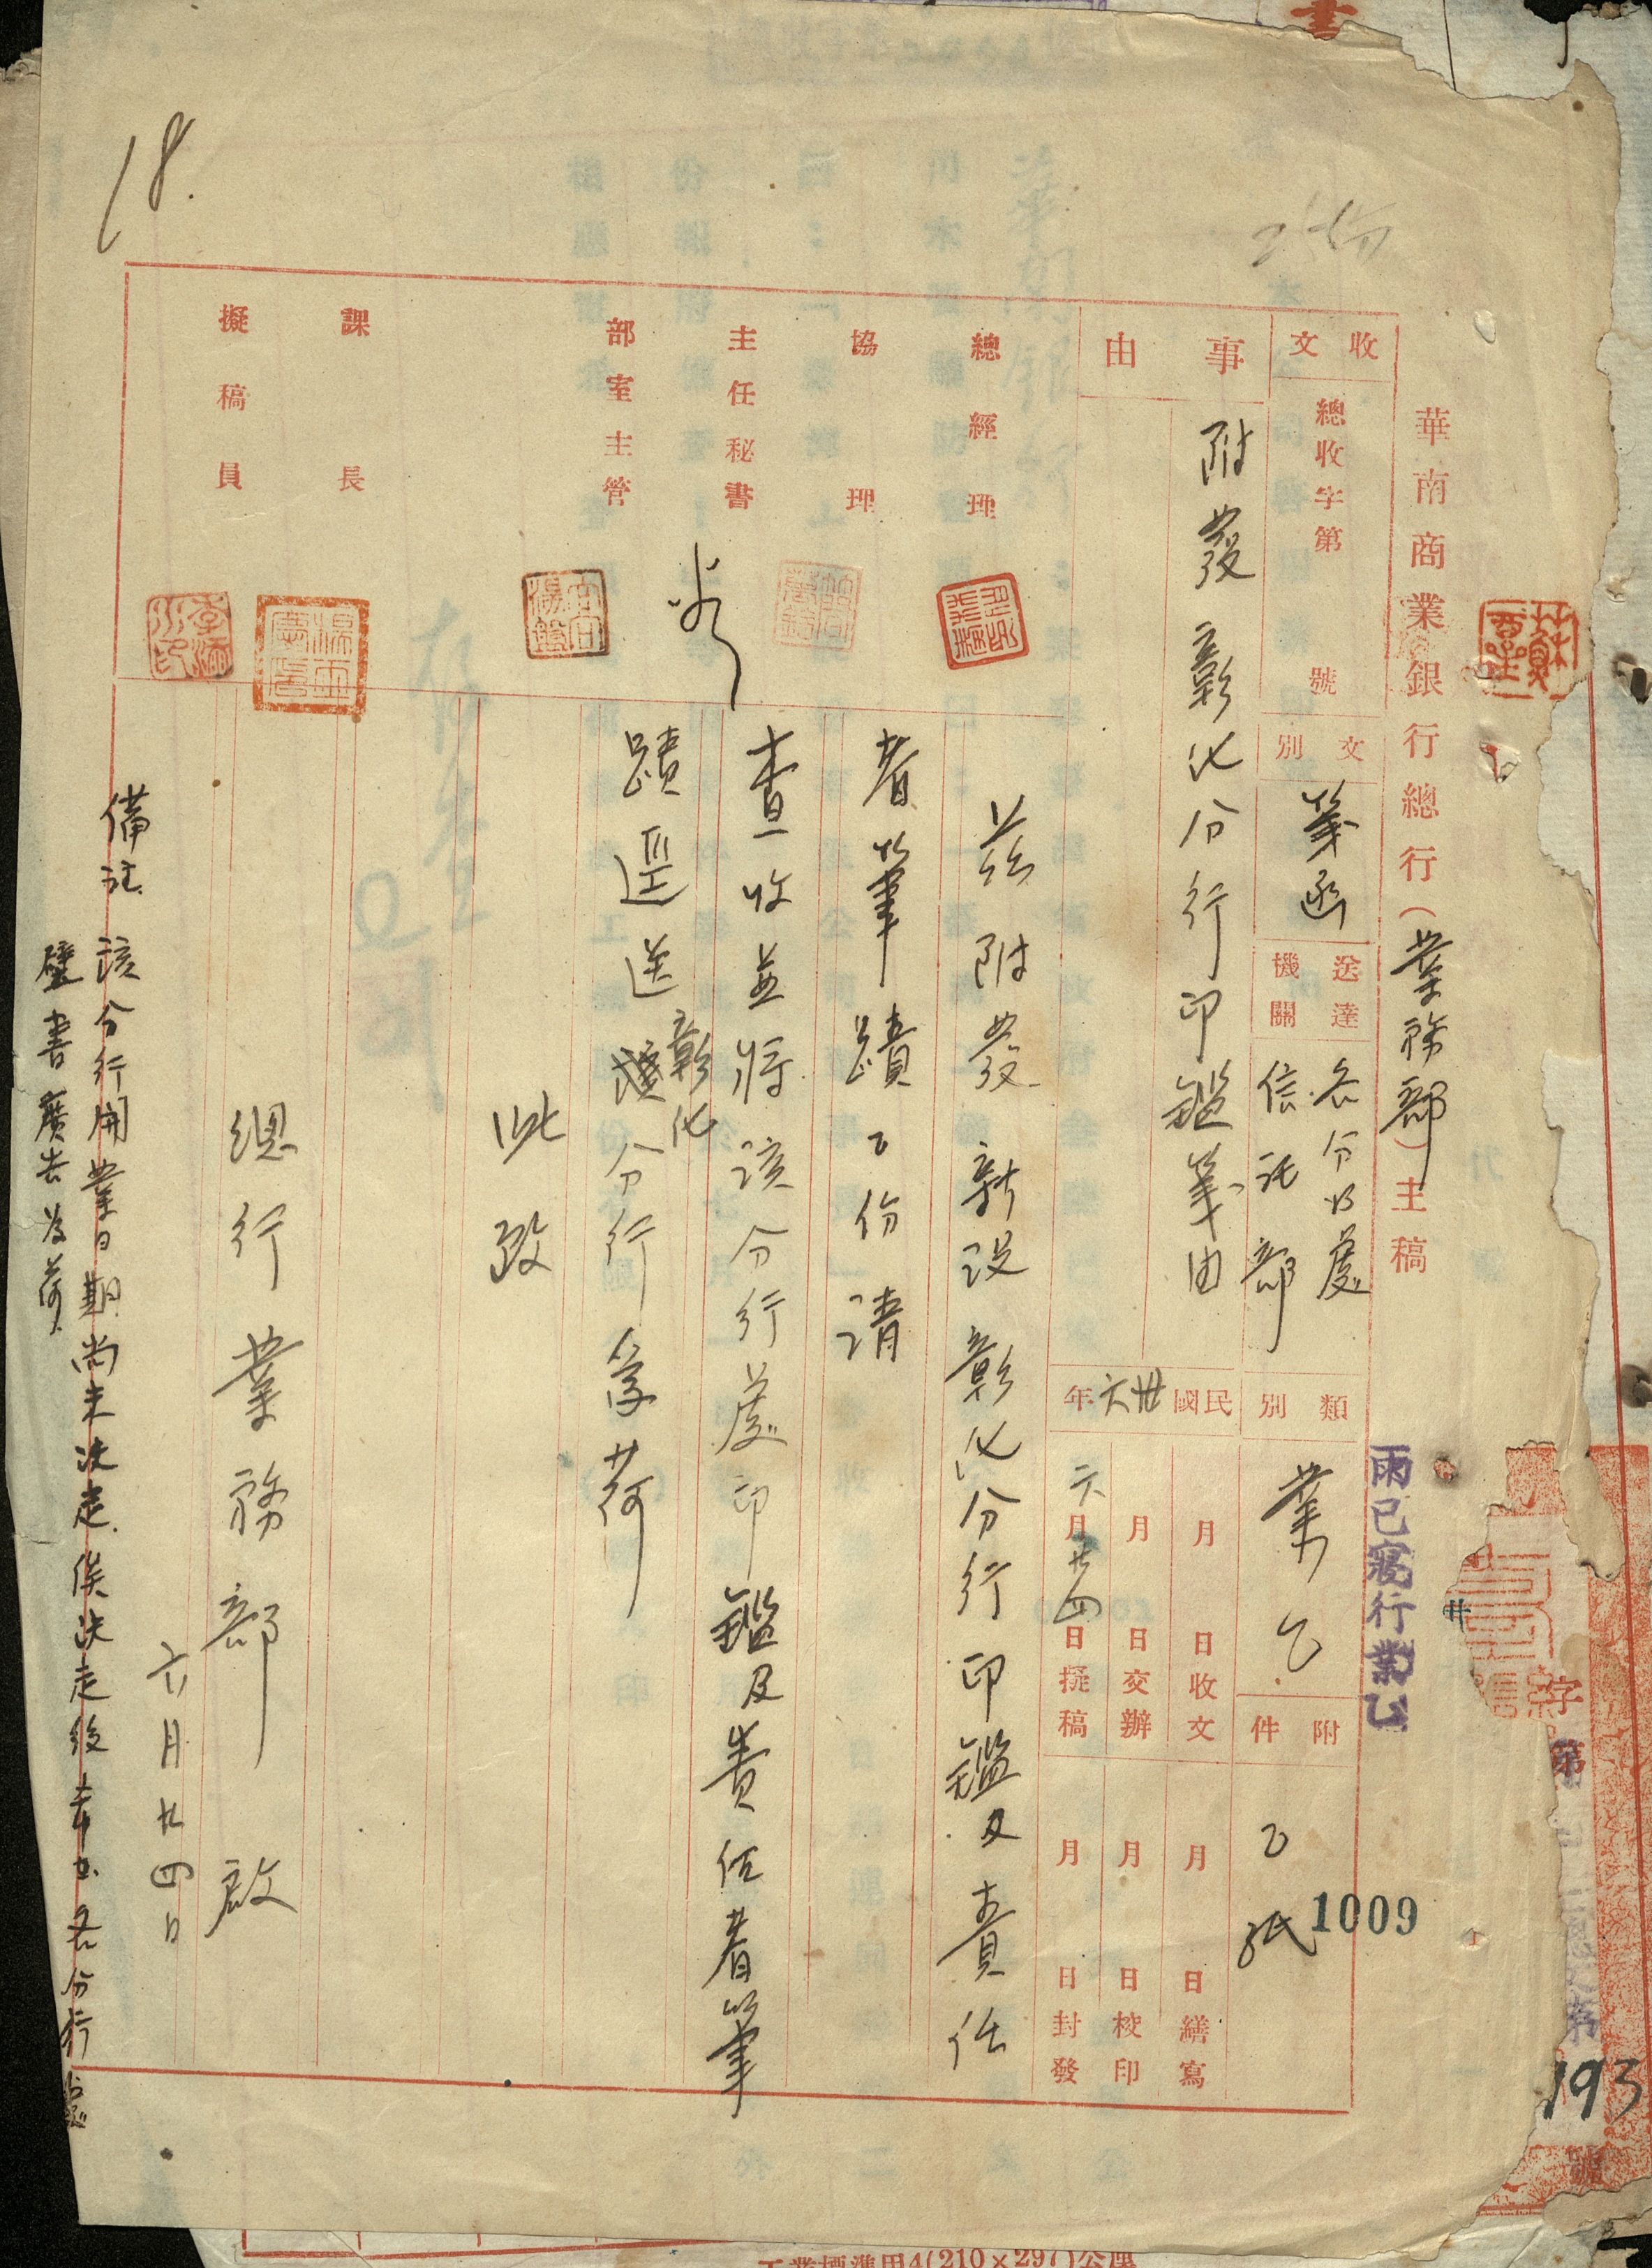 華南商業銀行總行（業務部）主稿
收文
總收字第 號
文別
箋函
送達機關
各分行處
信託部
類別
業乙
附件
乙紙
雨已寢行業乙
1009
事由
附發彰化分行印鑑箋由
民國卅六年
月 日收文
月 日交辦
六月廿四日擬稿
月 日繕寫
月 日校印
月 日封發
總經理
協理
主任秘書
部室主管
課長
擬稿員
茲附發新設彰化分行印鑑及責任
者筆蹟乙份請
查收並將該分行處印鑑及責任者筆
蹟逕送彰化分行為荷
此致
總行業務部啟
六月廿四日
備註 該分行開業日期尚未決定俟決定後各分行處
書廣告為荷
18.
字第
193
號
工業標準甲4(210×297)公厘